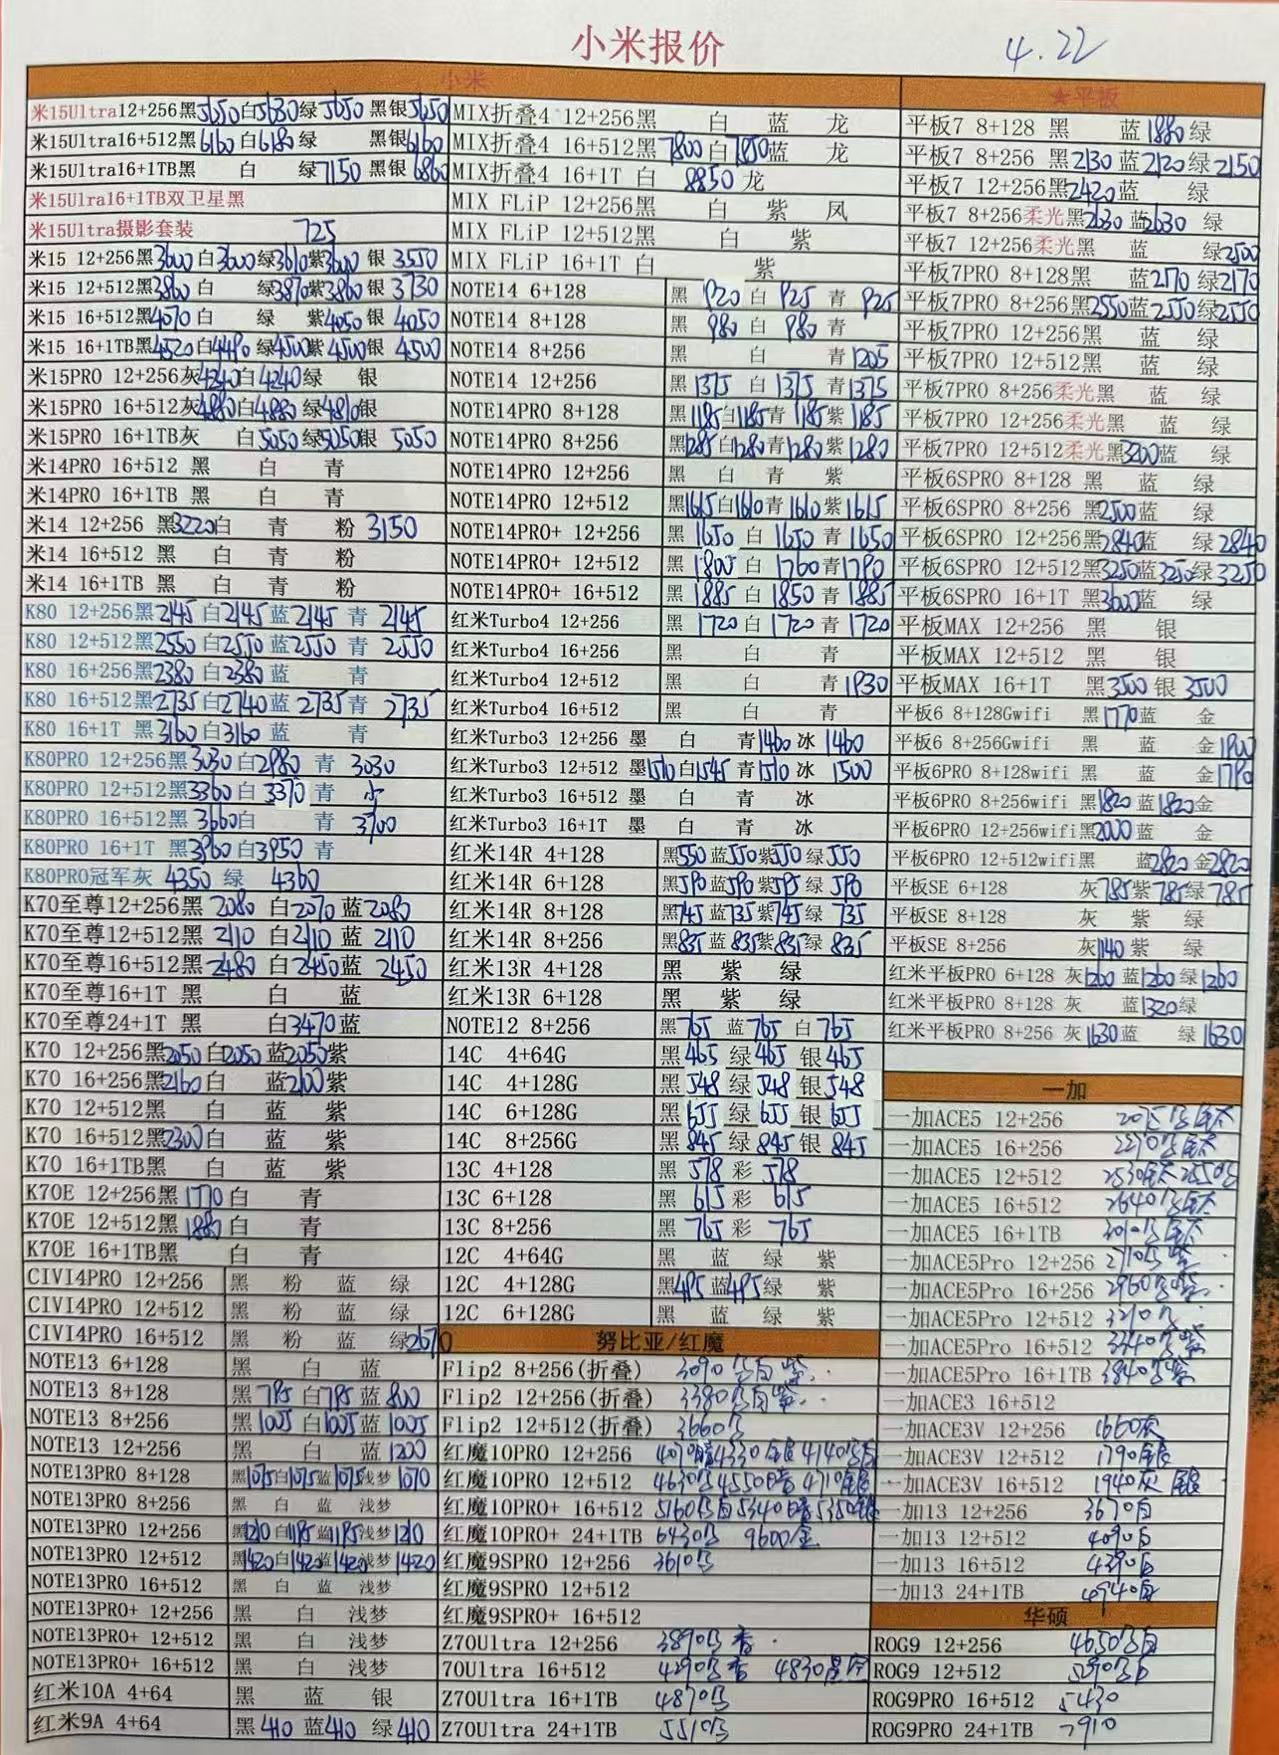 小米报价
4.22
小米
米15Ultra12+256黑5650白5630绿5650 黑银5650
米15Ultra16+512黑6160白6180绿 黑银6160
米15Ultra16+1TB黑 白 绿7150 黑银6860
米15Ulra16+1TB双卫星黑
米15Ultra摄影套装 725
米15 12+256黑3600白3600绿3610紫3600 银 3550
米15 12+512黑3860白 绿3870紫3860 银 3730
米15 16+512黑4070白 绿 紫4050银 4050
米15 16+1TB黑4520白4490绿4500紫4500银 4500
米15PRO 12+256灰4240白4240绿 银
米15PRO 16+512灰4880白4880 绿4810银
米15PRO 16+1TB灰 白5050绿5050银 5050
米14PRO 16+512 黑 白 青
米14PRO 16+1TB 黑 白 青
米14 12+256 黑3220白 青 粉 3150
米14 16+512 黑 白 青 粉
米14 16+1TB 黑 白 青 粉
K80 12+256黑2145白2145蓝2145 青 2145
K80 12+512黑2550白2550蓝2550 青 2550
K80 16+256黑2380白2380蓝 青
K80 16+512黑2735白2740蓝 2735青 2735
K80 16+1T 黑3160白3160蓝 青
K80PRO 12+256黑3030白2980 青 3030
K80PRO 12+512黑3360白3370 青
K80PRO 16+512黑 3660白 青 3700
K80PRO 16+1T 黑3960白3950 青
K80PRO冠军灰 4350 绿 4360
K70至尊12+256黑 2080 白2070蓝2080
K70至尊12+512黑 2110 白2110蓝 2110
K70至尊16+512黑2480 白2450蓝 2450
K70至尊16+1T 黑 白 蓝
K70至尊24+1T 黑 白3470蓝
K70 12+256黑2050白2050蓝2050紫
K70 16+256黑2160白 蓝2100紫
K70 12+512黑 白 蓝 紫
K70 16+512黑2300白 蓝 紫
K70 16+1TB黑 白 蓝 紫
K70E 12+256黑1770白 青
K70E 12+512黑1880白 青
K70E 16+1TB黑 白 青
CIVI4PRO 12+256 黑 粉 蓝 绿
CIVI4PRO 12+512 黑 粉 蓝 绿
CIVI4PRO 16+512 黑 粉 蓝 绿2670
NOTE13 6+128 黑 白 蓝
NOTE13 8+128 黑 785 白785蓝 800
NOTE13 8+256 黑1005白1005蓝1005
NOTE13 12+256 黑 白 蓝1200
NOTE13PRO 8+128 黑1075白1075蓝1075浅梦1070
NOTE13PRO 8+256 黑 白 蓝 浅梦
NOTE13PRO 12+256 黑1210白1185蓝1185浅梦1210
NOTE13PRO 12+512 黑1420白1420蓝1420浅梦1420
NOTE13PRO 16+512 黑 白 蓝 浅梦
NOTE13PRO+ 12+256 黑 白 浅梦
NOTE13PRO+ 12+512 黑 白 浅梦
NOTE13PRO+ 16+512 黑 白 浅梦
红米10A 4+64 黑 蓝 银
红米9A 4+64 黑410 蓝410 绿410
MIX折叠4 12+256黑 白 蓝 龙
MIX折叠4 16+512黑7800白7850蓝 龙
MIX折叠4 16+1T 白 8850龙
MIX FLiP 12+256黑 白 紫 凤
MIX FLiP 12+512黑 白 紫
MIX FLiP 16+1T 白 紫
NOTE14 6+128 黑 920白 925 青 925
NOTE14 8+128 黑 980 白 980 青
NOTE14 8+256 黑 白 青1205
NOTE14 12+256 黑1375 白1375 青1375
NOTE14PRO 8+128 黑1185白1185青 1185紫1185
NOTE14PRO 8+256 黑1285白1280青1280紫1280
NOTE14PRO 12+256 黑 白 青 紫
NOTE14PRO 12+512 黑1615白1610青1610紫1615
NOTE14PRO+ 12+256 黑 1650 白 1650 青 1650
NOTE14PRO+ 12+512 黑 1800 白 1760青1780
NOTE14PRO+ 16+512 黑 1885 白 1850 青1885
红米Turbo4 12+256 黑 1720白1720 青 1720
红米Turbo4 16+256 黑 白 青
红米Turbo4 12+512 黑 白 青1930
红米Turbo4 16+512 黑 白 青
红米Turbo3 12+256 墨 白 青1460冰 1460
红米Turbo3 12+512 墨1510白1545 青1510冰 1500
红米Turbo3 16+512 墨 白 青 冰
红米Turbo3 16+1T 墨 白 青 冰
红米14R 4+128 黑550蓝550紫550绿550
红米14R 6+128 黑590蓝590紫595绿590
红米14R 8+128 黑745蓝735紫745绿 735
红米14R 8+256 黑835蓝835紫835绿 835
红米13R 4+128 黑 紫 绿
红米13R 6+128 黑 紫 绿
NOTE12 8+256 黑765 蓝765 白765
14C 4+64G 黑465 绿465 银465
14C 4+128G 黑548 绿548 银548
14C 6+128G 黑655 绿655 银655
14C 8+256G 黑845 绿845 银845
13C 4+128 黑 578 彩 578
13C 6+128 黑 615 彩 615
13C 8+256 黑 765 彩 765
12C 4+64G 黑 蓝 绿 紫
12C 4+128G 黑495蓝495绿 紫
12C 6+128G 黑 蓝 绿 紫
努比亚/红魔
Flip2 8+256(折叠) 3090
Flip2 12+256(折叠) 3380
Flip2 12+512(折叠) 3660
红魔10PRO 12+256
红魔10PRO 12+512
红魔10PRO+ 16+512
红魔10PRO+ 24+1TB 6430 9600金
红魔9SPRO 12+256 3610
红魔9SPRO 12+512
红魔9SPRO+ 16+512
Z70Ultra 12+256 3890
70Ultra 16+512 4290 4830
Z70Ultra 16+1TB 4870
Z70Ultra 24+1TB 5510
★平板
平板7 8+128 黑 蓝1880绿
平板7 8+256 黑2130 蓝2120绿2150
平板7 12+256黑2420蓝 绿
平板7 8+256柔光黑2630 蓝2630 绿
平板7 12+256柔光黑 蓝 绿2500
平板7PRO 8+128黑 蓝2170绿2170
平板7PRO 8+256黑2550蓝2550绿2550
平板7PRO 12+256黑 蓝 绿
平板7PRO 12+512黑 蓝 绿
平板7PRO 8+256柔光黑 蓝 绿
平板7PRO 12+256柔光黑 蓝 绿
平板7PRO 12+512柔光黑3200蓝 绿
平板6SPRO 8+128 黑 蓝 绿
平板6SPRO 8+256 黑2500蓝 绿
平板6SPRO 12+256黑2840蓝 绿 2840
平板6SPRO 12+512黑3250蓝3250绿3250
平板6SPRO 16+1T 黑3600蓝 绿
平板MAX 12+256 黑 银
平板MAX 12+512 黑 银
平板MAX 16+1T 黑3500 银 3500
平板6 8+128Gwifi 黑1770蓝 金
平板6 8+256Gwifi 黑 蓝 金1900
平板6PRO 8+128wifi 黑 蓝 金1790
平板6PRO 8+256wifi 黑1820 蓝1820金
平板6PRO 12+256wifi黑2000蓝 金
平板6PRO 12+512wifi黑 蓝2820金2820
平板SE 6+128 灰785紫785绿785
平板SE 8+128 灰 紫 绿
平板SE 8+256 灰1140紫 绿
红米平板PRO 6+128 灰1260蓝1260绿1260
红米平板PRO 8+128 灰 蓝1320绿
红米平板PRO 8+256 灰1630蓝 绿 1630
一加
一加ACE5 12+256
一加ACE5 16+256
一加ACE5 12+512
一加ACE5 16+512 2640
一加ACE5 16+1TB 3010
一加ACE5Pro 12+256 2710
一加ACE5Pro 16+256 2960
一加ACE5Pro 12+512 3210
一加ACE5Pro 16+512 3340
一加ACE5Pro 16+1TB 3840
一加ACE3 16+512
一加ACE3V 12+256 1660灰
一加ACE3V 12+512 1790银
一加ACE3V 16+512 1940灰 银
一加13 12+256 3670白
一加13 12+512 4090
一加13 16+512 4390
一加13 24+1TB 4940
华硕
ROG9 12+256 4650
ROG9 12+512 5290
ROG9PRO 16+512 5430
ROG9PRO 24+1TB 7910